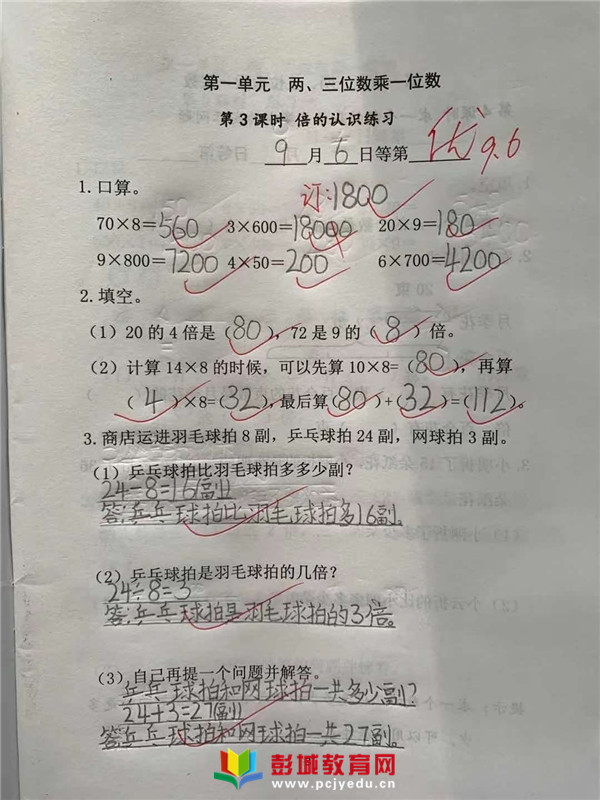 第一单元 两、三位数乘一位数
第3课时 倍的认识练习
9月6日等第 优 9.6
1.口算。 订:1800
70×8=560 3×600=18000 20×9=180
9×800=7200 4×50=200 6×700=4200
2.填空。
(1)20的4倍是(80),72是9的(8)倍。
(2)计算14×8的时候,可以先算10×8=(80),再算
(4)×8=(32),最后算(80)+(32)=(112)。
3.商店运进羽毛球拍8副,乒乓球拍24副,网球拍3副。
(1)乒乓球拍比羽毛球拍多多少副?
24-8=16(副)
答:乒乓球拍比羽毛球拍多16副。
(2)乒乓球拍是羽毛球拍的几倍?
24÷8=3
答:乒乓球拍是羽毛球拍的3倍。
(3)自己再提一个问题并解答。
乒乓球拍和网球拍一共多少副?
24+3=27(副)
答:乒乓球拍和网球拍一共27副。
彭城教育网
www.pcjyedu.cn